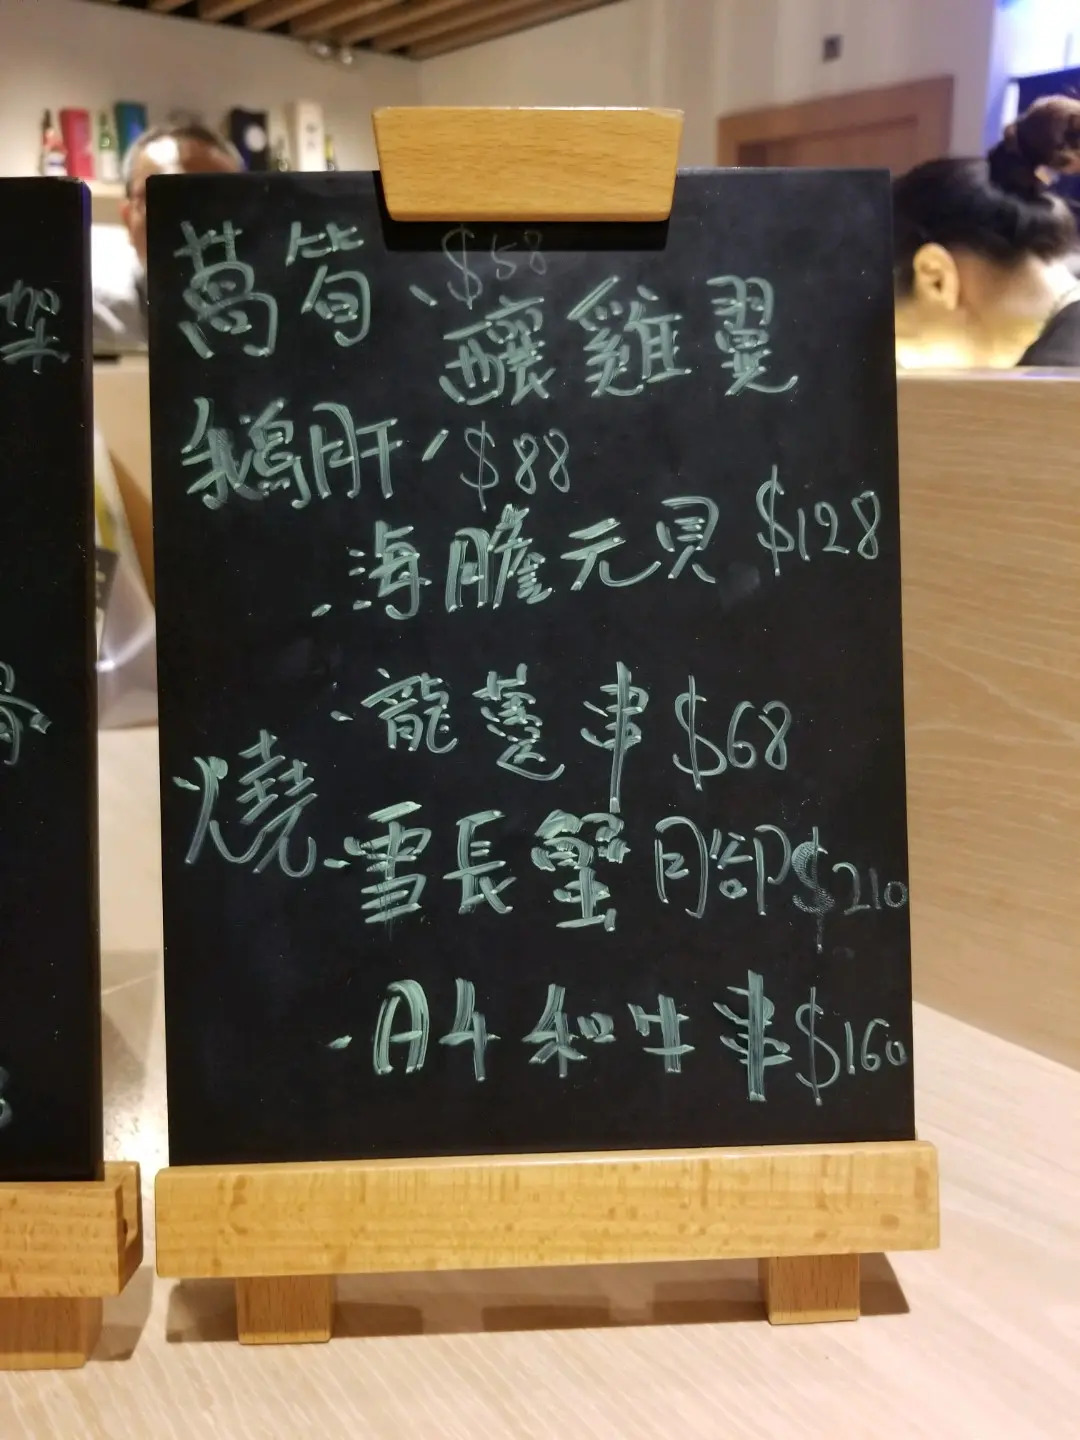 萵筍、$58
釀雞翼
鵝肝、$88
海膽元貝 $128
龍躉串 $68
燒
雪長蟹腳 $210
A4和牛串 $160
架
骨